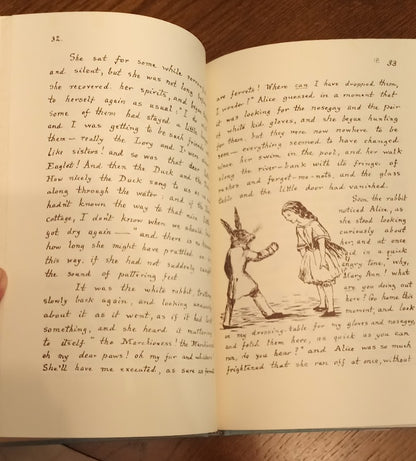 32.
She sat for some while
and silent, but she was not long
she recovered her spirits, and began
to herself again as usual: "I
some of them had stayed a little
and I was getting to be such friends
them — really the Lory and I were
like sisters! and so was that dear
Eaglet! And then the Duck and the
How nicely the Duck sang to us as
along through the water: and if the
hadn't known the way to that nice little
cottage, I don't know when we should have
got dry again —" and there is no
how long she might have prattled on in
this way, if she had not suddenly caught
the sound of pattering feet.
It was the white rabbit, trotting
slowly back again, and looking anxiously
about it as it went, as if it had lost
something, and she heard it muttering
to itself "the Marchioness! the Marchioness!
oh my dear paws! oh my fur and whiskers!
She'll have me executed, as sure as ferrets
33
are ferrets! Where can I have dropped them,
I wonder?" Alice guessed in a moment that
it was looking for the nosegay and the pair
of white kid gloves, and she began hunting
for them, but they were now nowhere to be
seen — everything seemed to have changed
since her swim in the pool, and her walk
along the river-bank with its fringe of
rushes and forget-me-nots, and the glass
table and the little door had vanished.
Soon the rabbit
noticed Alice, as
she stood looking
curiously about
her, and at once
said in a quick
angry tone, "why,
Mary Ann! what
are you doing out
here? Go home this
moment, and look
on my dressing-table for my gloves and nosegay,
and fetch them here, as quick as you can
run, do you hear?" and Alice was so much
frightened that she ran off at once, without